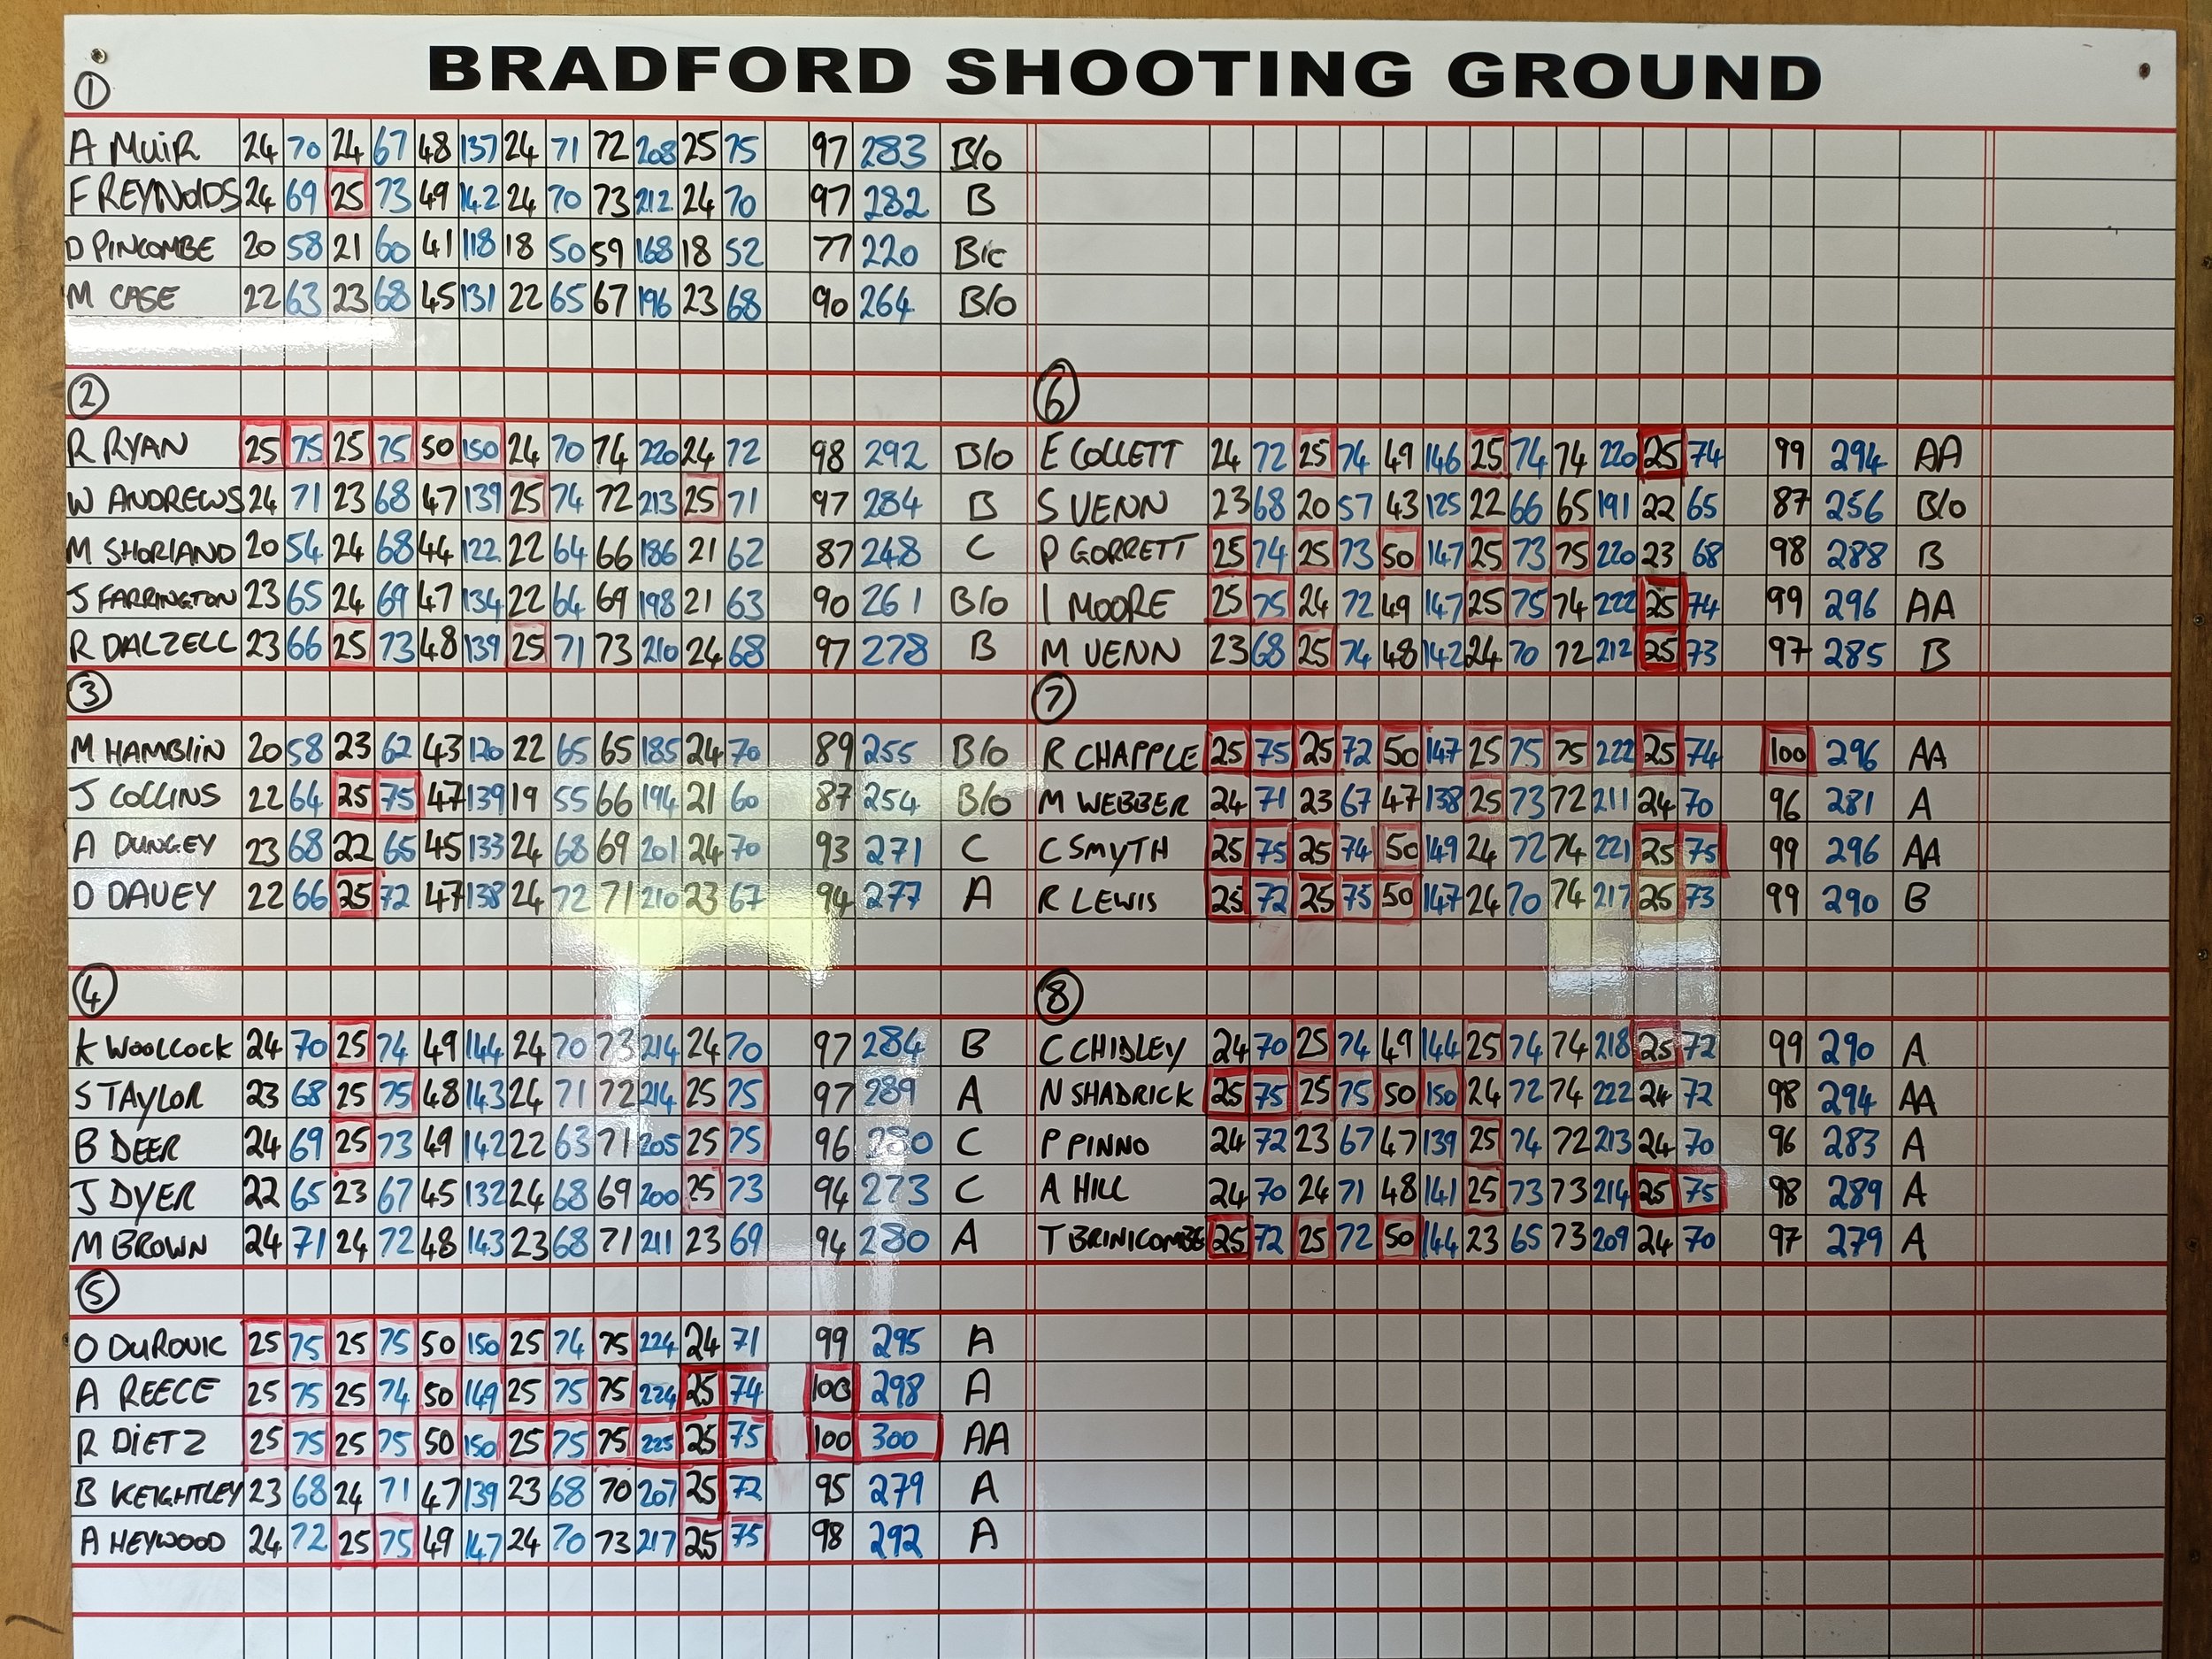 BRADFORD SHOOTING GROUND
①
A MUIR 24 70 24 67 48 137 24 71 72 208 25 75 97 283 B/O
F REYNOLDS 24 69 25 73 49 142 24 70 73 212 24 70 97 282 B
D PINCOMBE 20 58 21 60 41 118 18 50 59 168 18 52 77 220 B/C
M CASE 22 63 23 68 45 131 22 65 67 196 23 68 90 264 B/O
②
R RYAN 25 75 25 75 50 150 24 70 74 220 24 72 98 292 B/O
W ANDREWS 24 71 23 68 47 139 25 74 72 213 25 71 97 284 B
M SHORLAND 20 54 24 68 44 122 22 64 66 186 21 62 87 248 C
J FARRINGTON 23 65 24 69 47 134 22 64 69 198 21 63 90 261 B/O
R DALZELL 23 66 25 73 48 139 25 71 73 210 24 68 97 278 B
③
M HAMBLIN 20 58 23 62 43 120 22 65 65 185 24 70 89 255 B/O
J COLLINS 22 64 25 75 47 139 19 55 66 194 21 60 87 254 B/O
A DUNGEY 23 68 22 65 45 133 24 68 69 201 24 70 93 271 C
D DAVEY 22 66 25 72 47 138 24 72 71 210 23 67 94 277 A
④
K WOOLCOCK 24 70 25 74 49 144 24 70 73 214 24 70 97 284 B
S TAYLOR 23 68 25 75 48 143 24 71 72 214 25 75 97 289 A
B DEER 24 69 25 73 49 142 22 63 71 205 25 75 96 280 C
J DYER 22 65 23 67 45 132 24 68 69 200 25 73 94 273 C
M BROWN 24 71 24 72 48 143 23 68 71 211 23 69 94 280 A
⑤
O DUROVIC 25 75 25 75 50 150 25 74 75 224 24 71 99 295 A
A REECE 25 75 25 74 50 149 25 75 75 224 25 74 100 298 A
R DIETZ 25 75 25 75 50 150 25 75 75 225 25 75 100 300 AA
B KEIGHTLEY 23 68 24 71 47 139 23 68 70 207 25 72 95 279 A
A HEYWOOD 24 72 25 75 49 147 24 70 73 217 25 75 98 292 A
⑥
E COLLETT 24 72 25 74 49 146 25 74 74 220 25 74 99 294 AA
S VENN 23 68 20 57 43 125 22 66 65 191 22 65 87 256 B/O
P GORRETT 25 74 25 73 50 147 25 73 75 220 23 68 98 288 B
I MOORE 25 75 24 72 49 147 25 75 74 222 25 74 99 296 AA
M VENN 23 68 25 74 48 142 24 70 72 212 25 73 97 285 B
⑦
R CHAPPLE 25 75 25 72 50 147 25 75 75 222 25 74 100 296 AA
M WEBBER 24 71 23 67 47 138 25 73 72 211 24 70 96 281 A
C SMYTH 25 75 25 74 50 149 24 72 74 221 25 75 99 296 AA
R LEWIS 25 72 25 75 50 147 24 70 74 217 25 73 99 290 B
⑧
C CHIDLEY 24 70 25 74 49 144 25 74 74 218 25 72 99 290 A
N SHADRICK 25 75 25 75 50 150 24 72 74 222 24 72 98 294 AA
P PINNO 24 72 23 67 47 139 25 74 72 213 24 70 96 283 A
A HILL 24 70 24 71 48 141 25 73 73 214 25 75 98 289 A
T BRINICOMBE 25 72 25 72 50 144 23 65 73 209 24 70 97 279 A